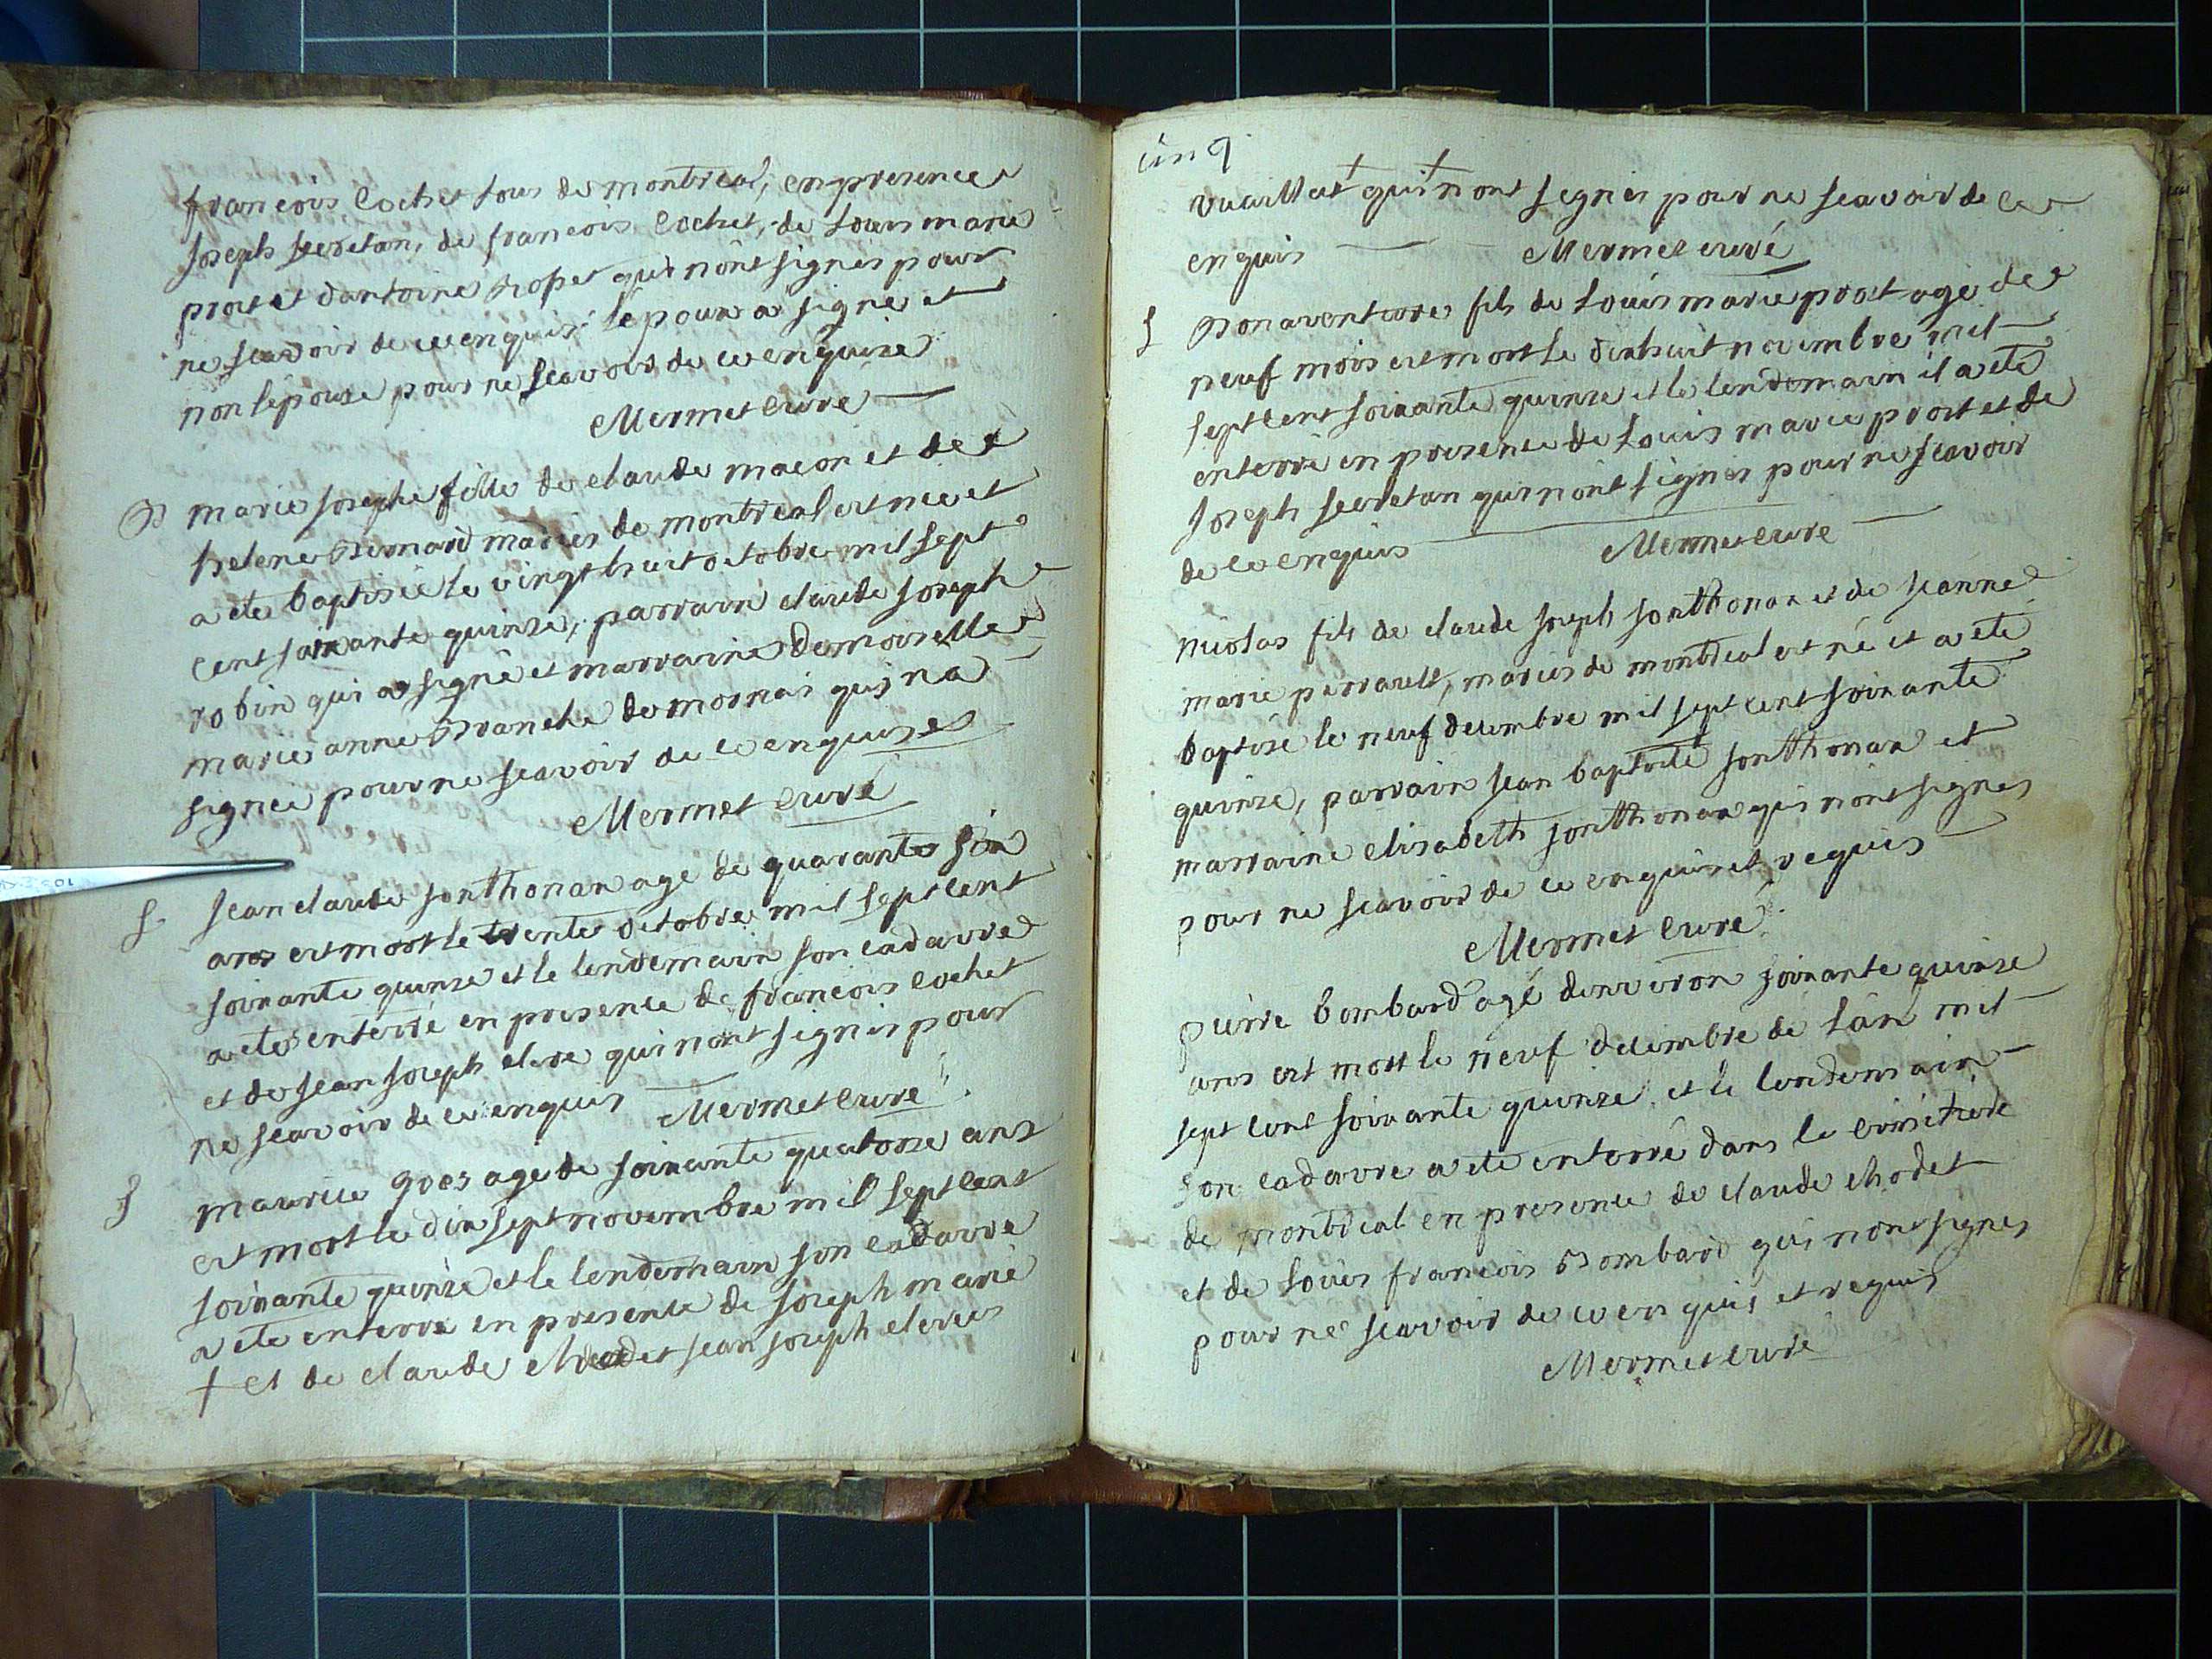 francois Cochet tous de montreal, en presence
joseph secretan, de francois Cochet, de Louis marie
prost et dantoine qui nont signés pour
ne scavoir de ce enquis. lepoux a signé et
non lepouse pour ne scavoir de ce enquise
Mermet curé
B marie josephe fille de claude macon et de
helene Bernard mariés de montreal est née et
a ete baptisée le vingt huit octobre mil sept
cent soixante quinze, parrain claude joseph
robin qui a signé et marraine demoiselle
marie anne Branche de mornai qui na
signée pour ne scavoir de ce enquise
Mermet curé
S jean claude jonthonax age de quarante six
ans est mort le trente octobre mil sept cent
soixante quinze et le lendemain son cadavre
a ete enterré en presence de francois Cochet
et de jean joseph clerc qui nont signés pour
ne scavoir de ce enquis Mermet curé
S maurice gros age de soixante quatorze ans
est mort le dix sept novembre mil sept cent
soixante quinze et le lendemain son cadavre
a ete enterré en presence de joseph marie
+ et de claude et jean joseph clercs
cinq
vuaillat + qui + nont signés pour ne scavoir de ce
enquis Mermet curé
S Bonaventure fils de Louis marie prost agé de
neuf mois est mort le dixhuit novembre mil
sept cent soixante quinze et le lendemain il a ete
enterré en presence de Louis marie prost et de
joseph secretan qui nont signés pour ne scavoir
de ce enquis Mermet curé
nicolas fils de claude joseph jonthonax et de jeanne
marie perrault, mariés de montreal est né et a ete
baptisé le neuf decembre mil sept cent soixante
quinze, parrain jean baptiste jonthonax et
marraine elisabeth jonthonax qui nont signés
pour ne scavoir de ce enquis et requis
Mermet curé
pierre bombard agé denviron soixante quinze
ans est mort le neuf decembre de lan mil
sept cent soixante quinze et le lendemain
son cadavre a ete enterré dans le cimetiere
de montreal en presence de claude chodet
et de Louis francois Bombard qui nont signés
pour ne scavoir de ce enquis et requis
Mermet curé